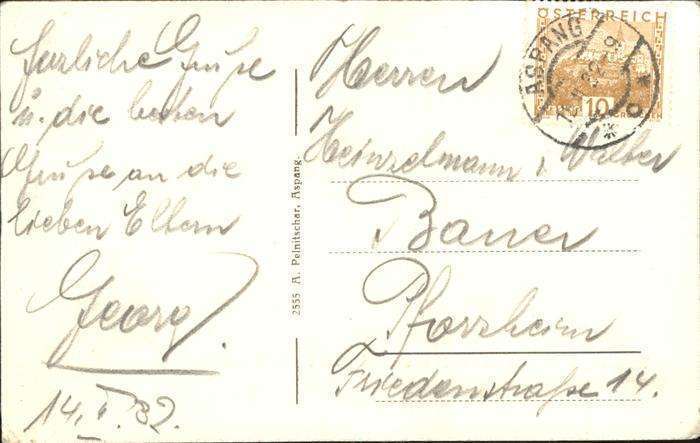 herzliche Grüße
u. die besten
Grüße an die
lieben Eltern
Georg.
14. I. 32.
2555 A. Pelnitschar, Aspang.
ÖSTERREICH
10
ASPANG
Herren
Heinzelmann u. Walter
Bauer
Pforzheim
Friedenstraße 14.